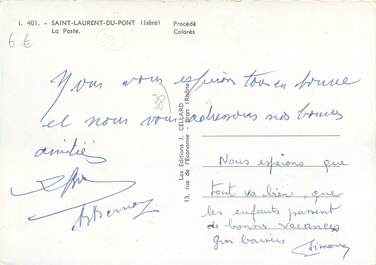 I. 401. - SAINT-LAURENT-DU-PONT (Isère)
La Poste.
Procédé
Colorès
6 €
38
Nous vous espérons tous en bonne
et nous vous adressons nos bonnes
amitiés
Les Editions J. CELLARD
13, rue de l'Economie - Bron (Rhône)
Nous espérons que
tout va bien, que
les enfants passent
de bonnes vacances
gros baisers
Simone